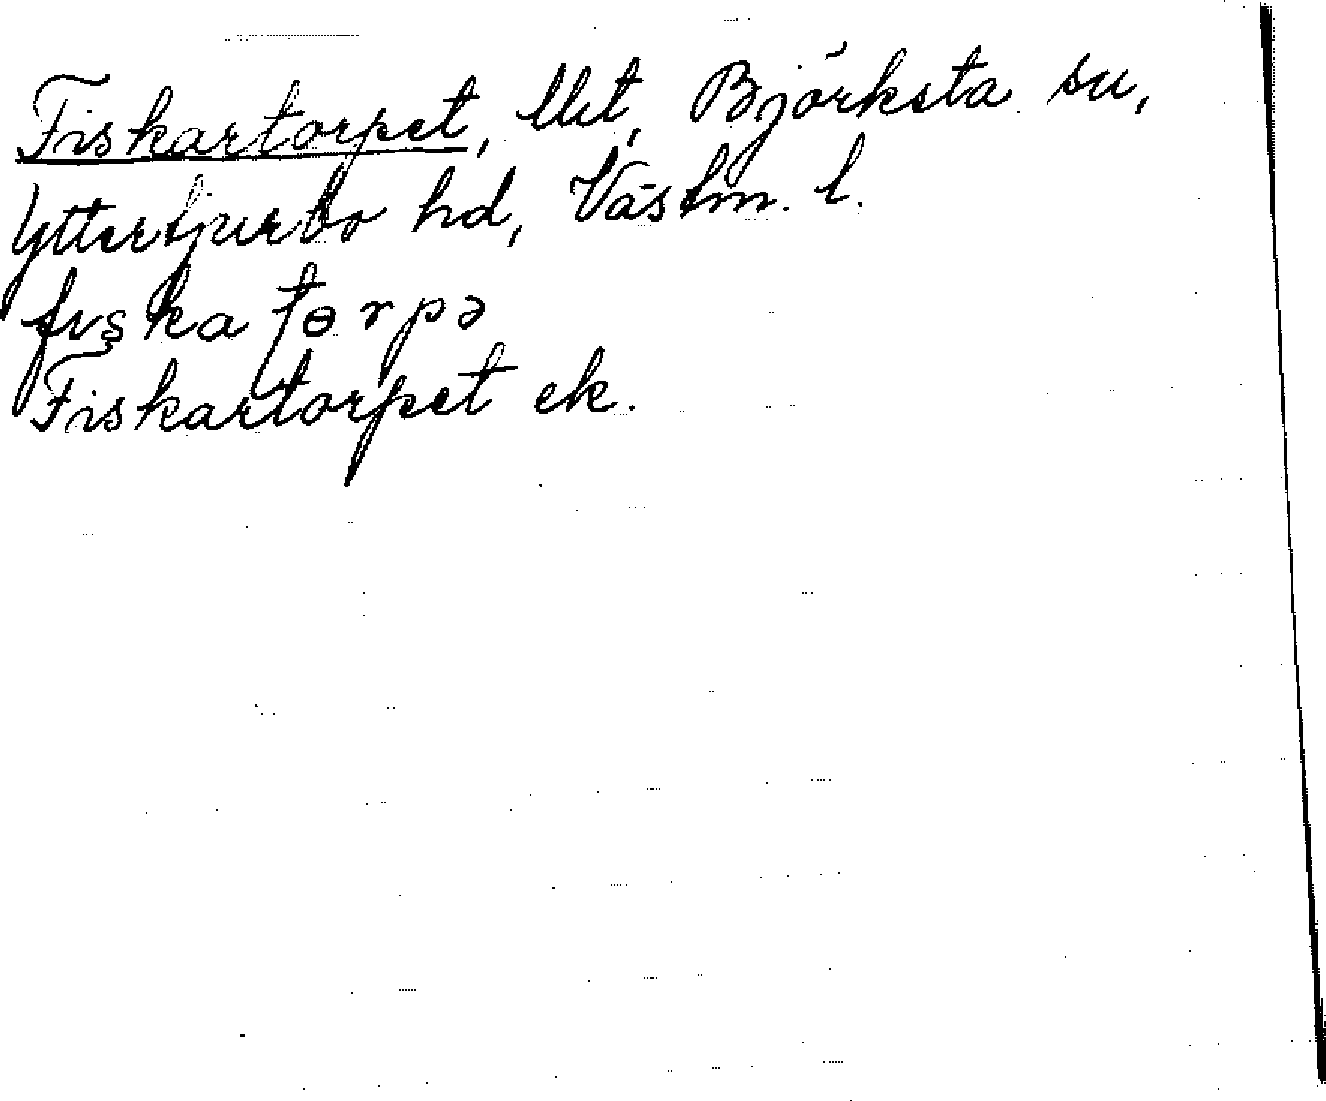 Fiskartorpet, llet, Björksta sn,
Yttertjurbo hd, Västm. l.
fıska tɵrpə
Fiskartorpet ek.